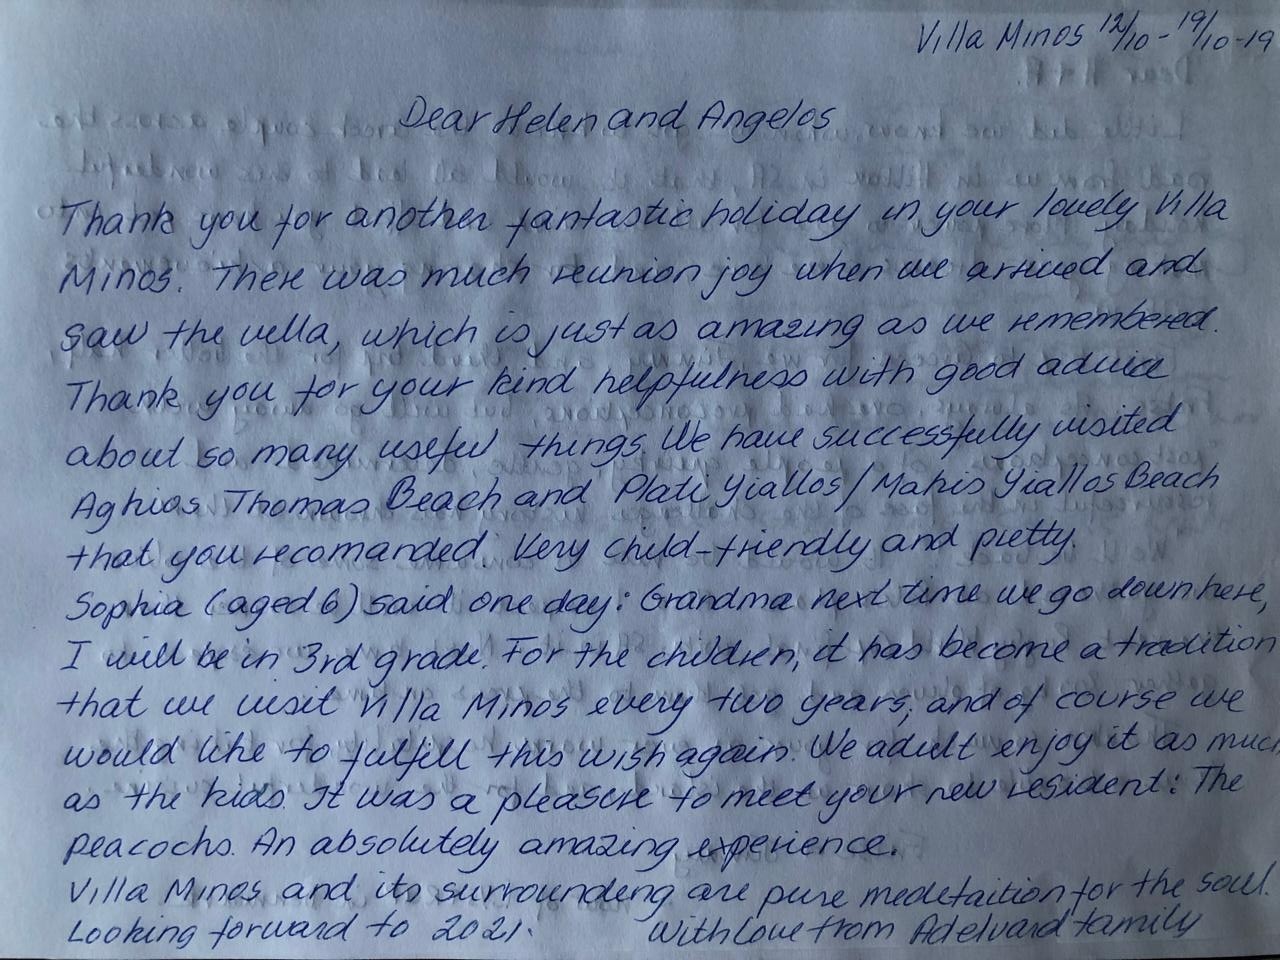 Villa Minos 12/10 - 19/10-19
Dear Helen and Angelos
Thank you for another fantastic holiday in your lovely Villa
Minos. There was much reunion joy when we arrived and
saw the vella, which is just as amazing as we remembered.
Thank you for your kind helpfulness with good advice
about so many useful things. We have successfully visited
Aghios Thomas Beach and Plati Yiallos/Makis Yiallos Beach
that you recomanded. Very child-friendly and pretty.
Sophia (aged 6) said one day: Grandma next time we go down here,
I will be in 3rd grade. For the children, it has become a tradition
that we visit Villa Minos every two years, and of course we
would like to fulfill this wish again. We adult enjoy it as much
as the kids. It was a pleasure to meet your new resident: The
peacochs. An absolutely amazing experience.
Villa Minos and its surrounding are pure medetaition for the soul.
Looking forward to 2021. With love from Adelvard family